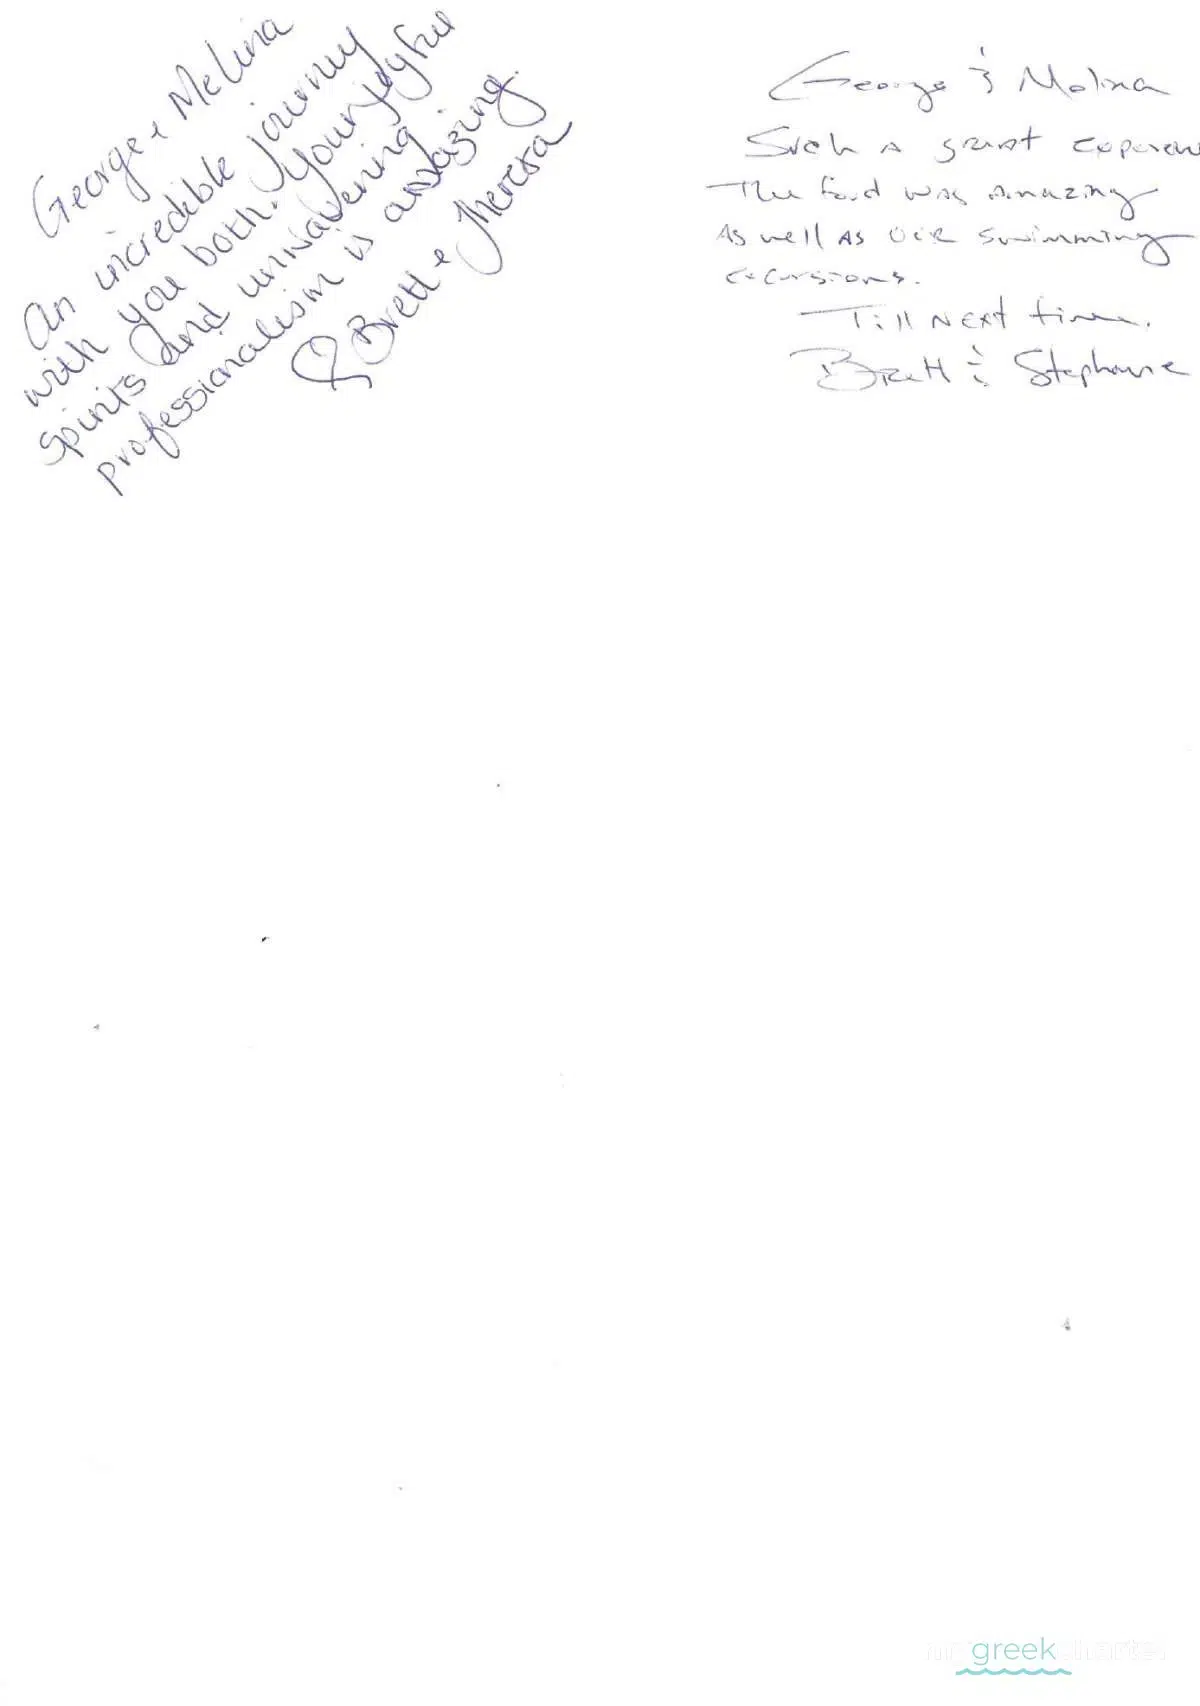 George & Melina
An incredible journey
with you both. Your joyful
spirits and unwavering
professionalism is amazing.
Brett & Theresa
George & Molina
Such a great
The food was amazing
As well as our swimming
excursions.
Till Next time.
Brett & Stephanie
my greek charter